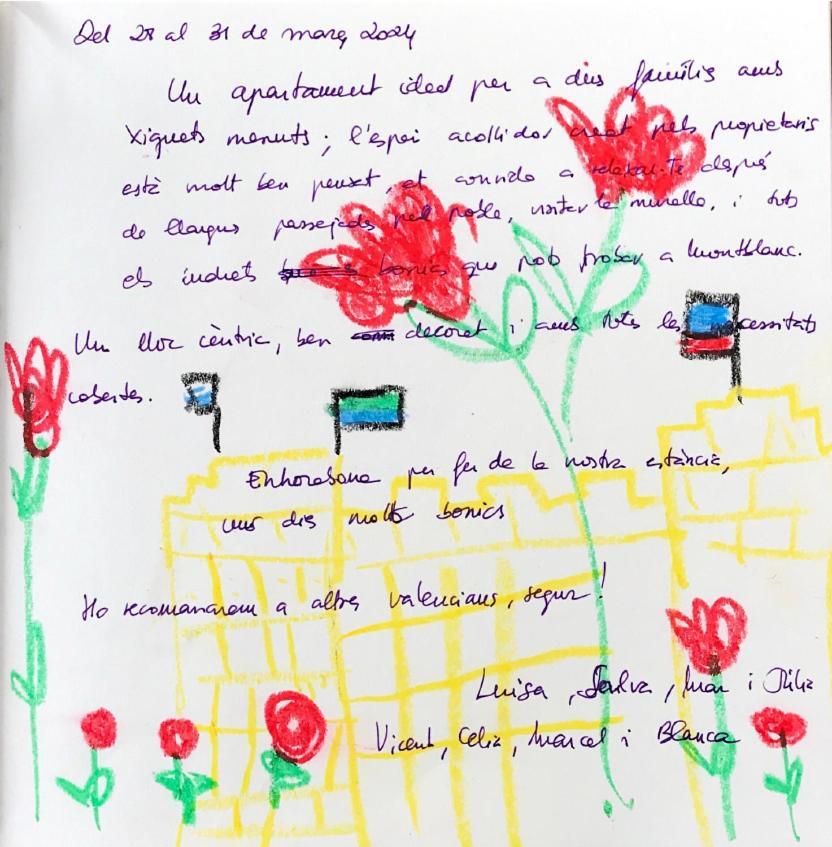 Del 28 al 31 de març 2024
Un apartament ideal per a dos famílies amb
xiquets menuts; l'espai acollidor creat pels propietaris
està molt ben pensat, et convida a relaxar-te després
de llargues passejades pel poble, visitar la muralla, i tots
els indrets bonics que pots trobar a Montblanc.
Un lloc cèntric, ben decorat i amb totes les necessitats
cobertes.
Enhorabona per fer de la nostra estància,
uns dies molts bonics
Ho recomanarem a altres valencians, segur!
Luisa, Salva, Mar i
Vicent, Celia, Marcel i Blanca